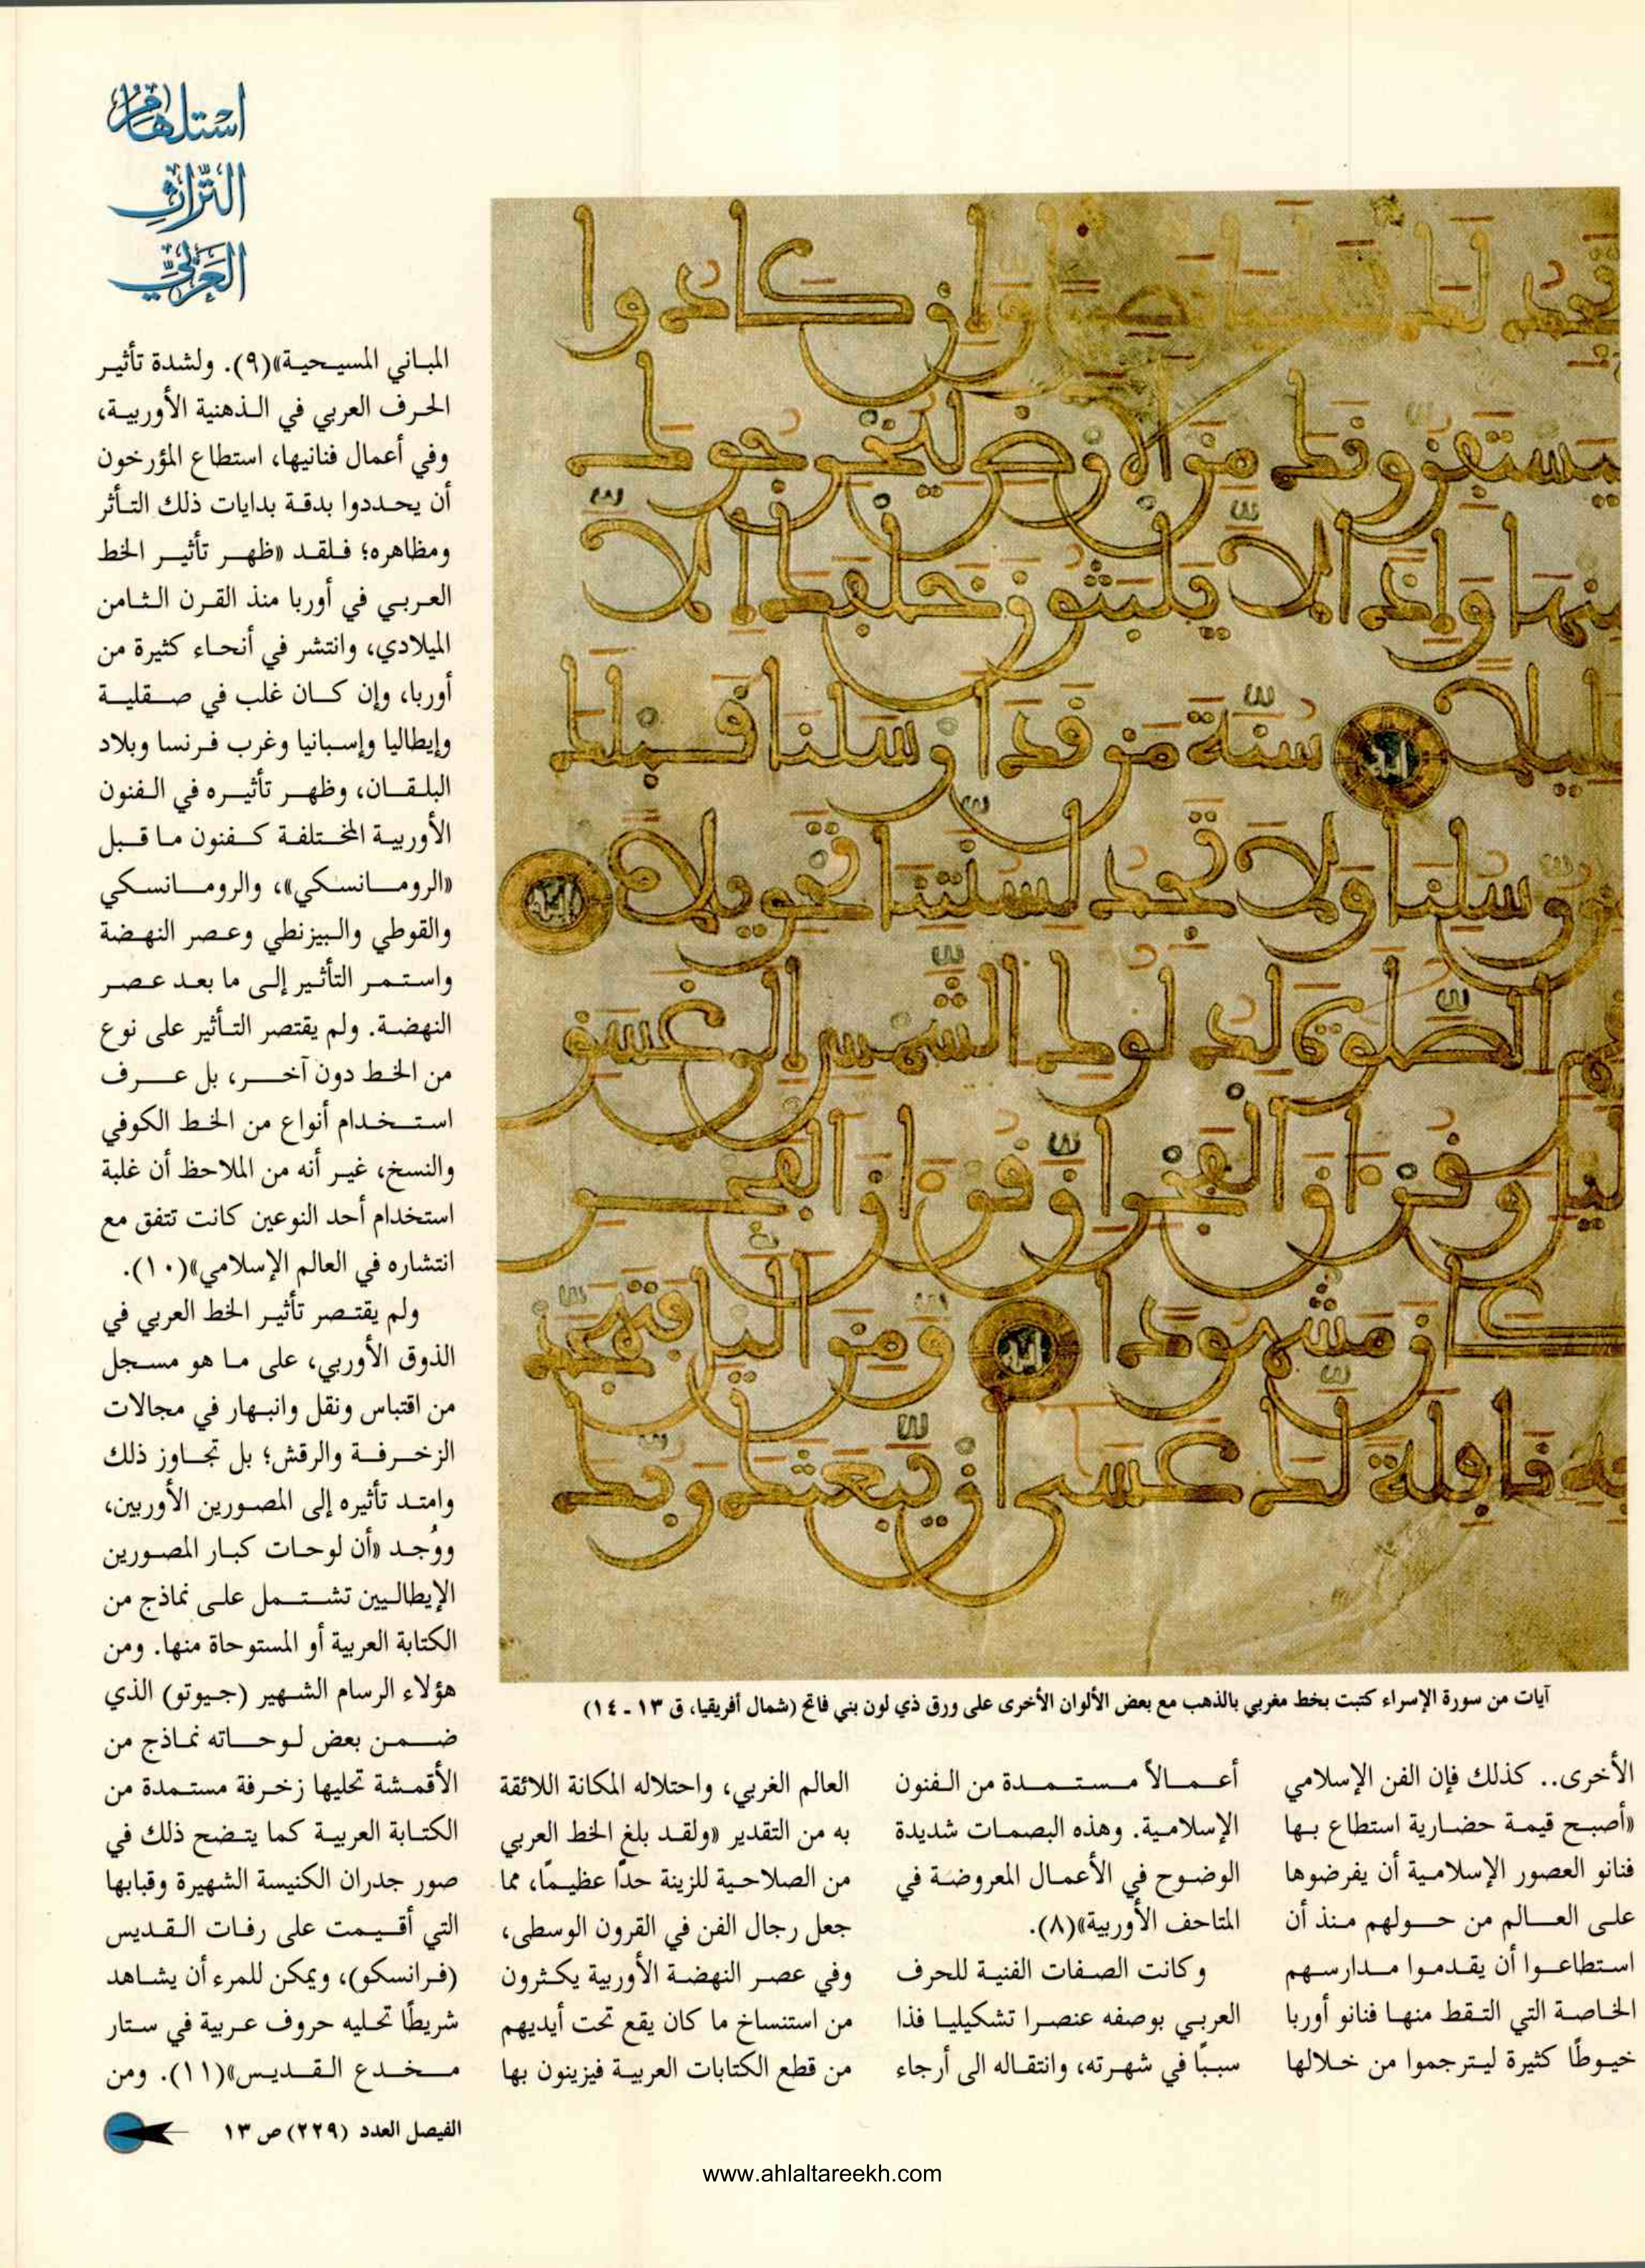 استلهام
التراث
العربي
تجد لك علينا نصيرا وإن كادوا
ليستفزونك من الأرض ليخرجوك
منها وإذا لا يلبثون خلفك إلا
قليلا سنة من قد أرسلنا قبلك
من رسلنا ولا تجد لسنتنا تحويلا
أقم الصلوة لدلوك الشمس إلى غسق
اليل وقرءان الفجر إن قرءان الفجر
كان مشهودا ومن اليل فتهجد
به نافلة لك عسى أن يبعثك ربك
آيات من سورة الإسراء كتبت بخط مغربي بالذهب مع بعض الألوان الأخرى على ورق ذي لون بني فاتح (شمال أفريقيا، ق ١٣ - ١٤)
الأخرى.. كذلك فإن الفن الإسلامي
«أصبح قيمة حضارية استطاع بها
فنانو العصور الإسلامية أن يفرضوها
على العالم من حولهم منذ أن
استطاعوا أن يقدموا مدارسهم
الخاصة التي التقط منها فنانو أوربا
خيوطًا كثيرة ليترجموا من خلالها
أعمالاً مستمدة من الفنون
الإسلامية. وهذه البصمات شديدة
الوضوح في الأعمال المعروضة في
المتاحف الأوربية»(٨).
وكانت الصفات الفنية للحرف
العربي بوصفه عنصرا تشكيليا فذا
سببًا في شهرته، وانتقاله الى أرجاء
العالم الغربي، واحتلاله المكانة اللائقة
به من التقدير «ولقد بلغ الخط العربي
من الصلاحية للزينة حدًا عظيمًا، مما
جعل رجال الفن في القرون الوسطى،
وفي عصر النهضة الأوربية يكثرون
من استنساخ ما كان يقع تحت أيديهم
من قطع الكتابات العربية فيزينون بها
المباني المسيحية»(٩). ولشدة تأثير
الحرف العربي في الذهنية الأوربية،
وفي أعمال فنانيها، استطاع المؤرخون
أن يحددوا بدقة بدايات ذلك التأثر
ومظاهره؛ فلقد «ظهر تأثير الخط
العربي في أوربا منذ القرن الثامن
الميلادي، وانتشر في أنحاء كثيرة من
أوربا، وإن كان غلب في صقلية
وإيطاليا وإسبانيا وغرب فرنسا وبلاد
البلقان، وظهر تأثيره في الفنون
الأوربية المختلفة كفنون ما قبل
«الرومانسكي»، والرومانسكي
والقوطي والبيزنطي وعصر النهضة
واستمر التأثير إلى ما بعد عصر
النهضة. ولم يقتصر التأثير على نوع
من الخط دون آخر، بل عرف
استخدام أنواع من الخط الكوفي
والنسخ، غير أنه من الملاحظ أن غلبة
استخدام أحد النوعين كانت تتفق مع
انتشاره في العالم الإسلامي»(١٠).
ولم يقتصر تأثير الخط العربي في
الذوق الأوربي، على ما هو مسجل
من اقتباس ونقل وانبهار في مجالات
الزخرفة والرقش؛ بل تجاوز ذلك
وامتد تأثيره إلى المصورين الأوربين،
ووُجد «أن لوحات كبار المصورين
الإيطاليين تشتمل على نماذج من
الكتابة العربية أو المستوحاة منها. ومن
هؤلاء الرسام الشهير (جيوتو) الذي
ضمن بعض لوحاته نماذج من
الأقمشة تحليها زخرفة مستمدة من
الكتابة العربية كما يتضح ذلك في
صور جدران الكنيسة الشهيرة وقبابها
التي أقيمت على رفات القديس
(فرانسكو)، ويمكن للمرء أن يشاهد
شريطًا تحليه حروف عربية في ستار
مخدع القديس»(١١). ومن
الفيصل العدد (٢٢٩) ص ١٣
www.ahlaltareekh.com